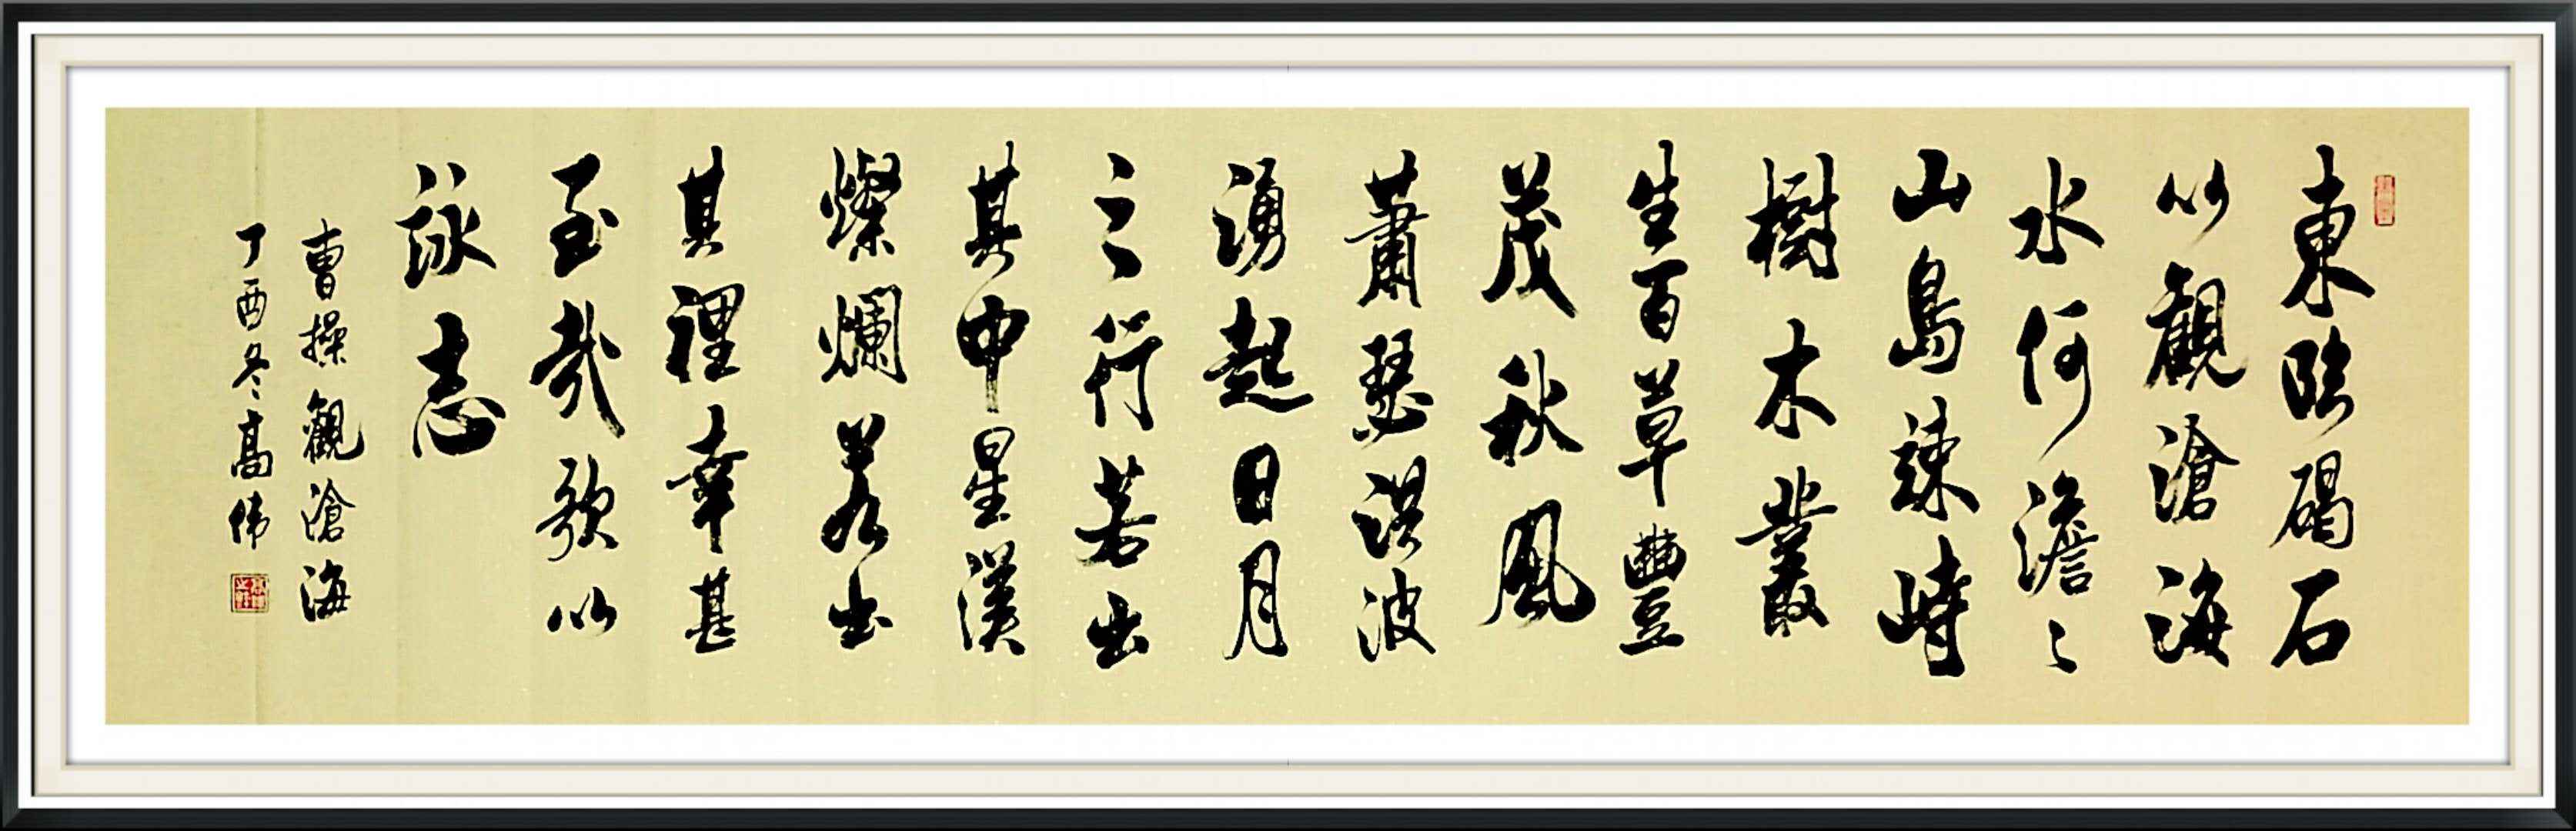 東臨碣石
以觀滄海
水何澹々
山島竦峙
樹木叢
生百草豐
茂秋風
蕭瑟洪波
湧起日月
之行若出
其中星漢
燦爛若出
其裡幸甚
至哉歌以
詠志
曹操觀滄海
丁酉冬高伟